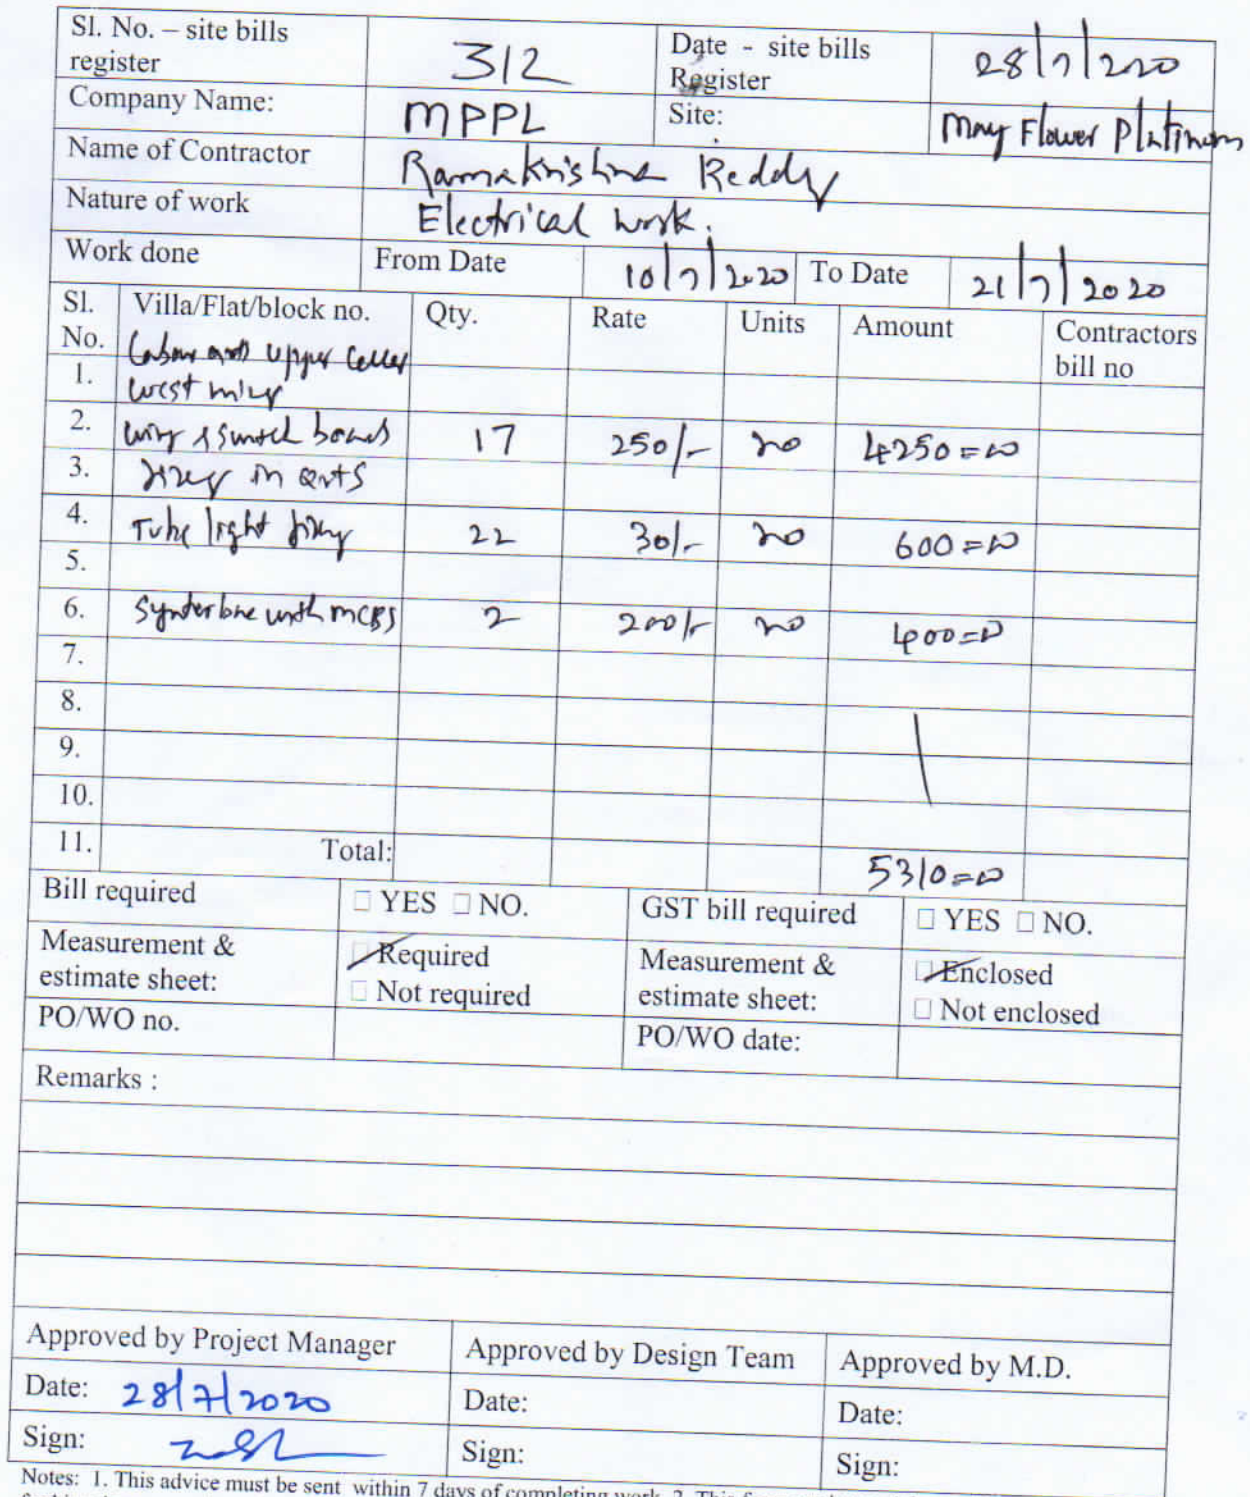 Sl. No. – site bills register 312 Date - site bills Register 28/7/2020
Company Name: MPPL Site: May Flower Platinum
Name of Contractor Ramakrishna Reddy
Nature of work Electrical work.
Work done From Date 10/7/2020 To Date 21/7/2020
Sl. No. Villa/Flat/block no. Qty. Rate Units Amount Contractors bill no
1. upper Celler
west
2. boards 17 250/- no 4250=00
3. in
4. Tube light fixing 22 30/- no 600=00
5.
6. with MCBS 2 200/- no 400=00
7.
8.
9.
10.
11. Total: 5310=00
Bill required □ YES □ NO. GST bill required □ YES □ NO.
Measurement & estimate sheet: □ Required Measurement & estimate sheet: □ Enclosed
□ Not required □ Not enclosed
PO/WO no. PO/WO date:
Remarks :
Approved by Project Manager Approved by Design Team Approved by M.D.
Date: 28/7/2020 Date: Date:
Sign: Sign: Sign:
Notes: 1. This advice must be sent within 7 days of completing work. 2. This